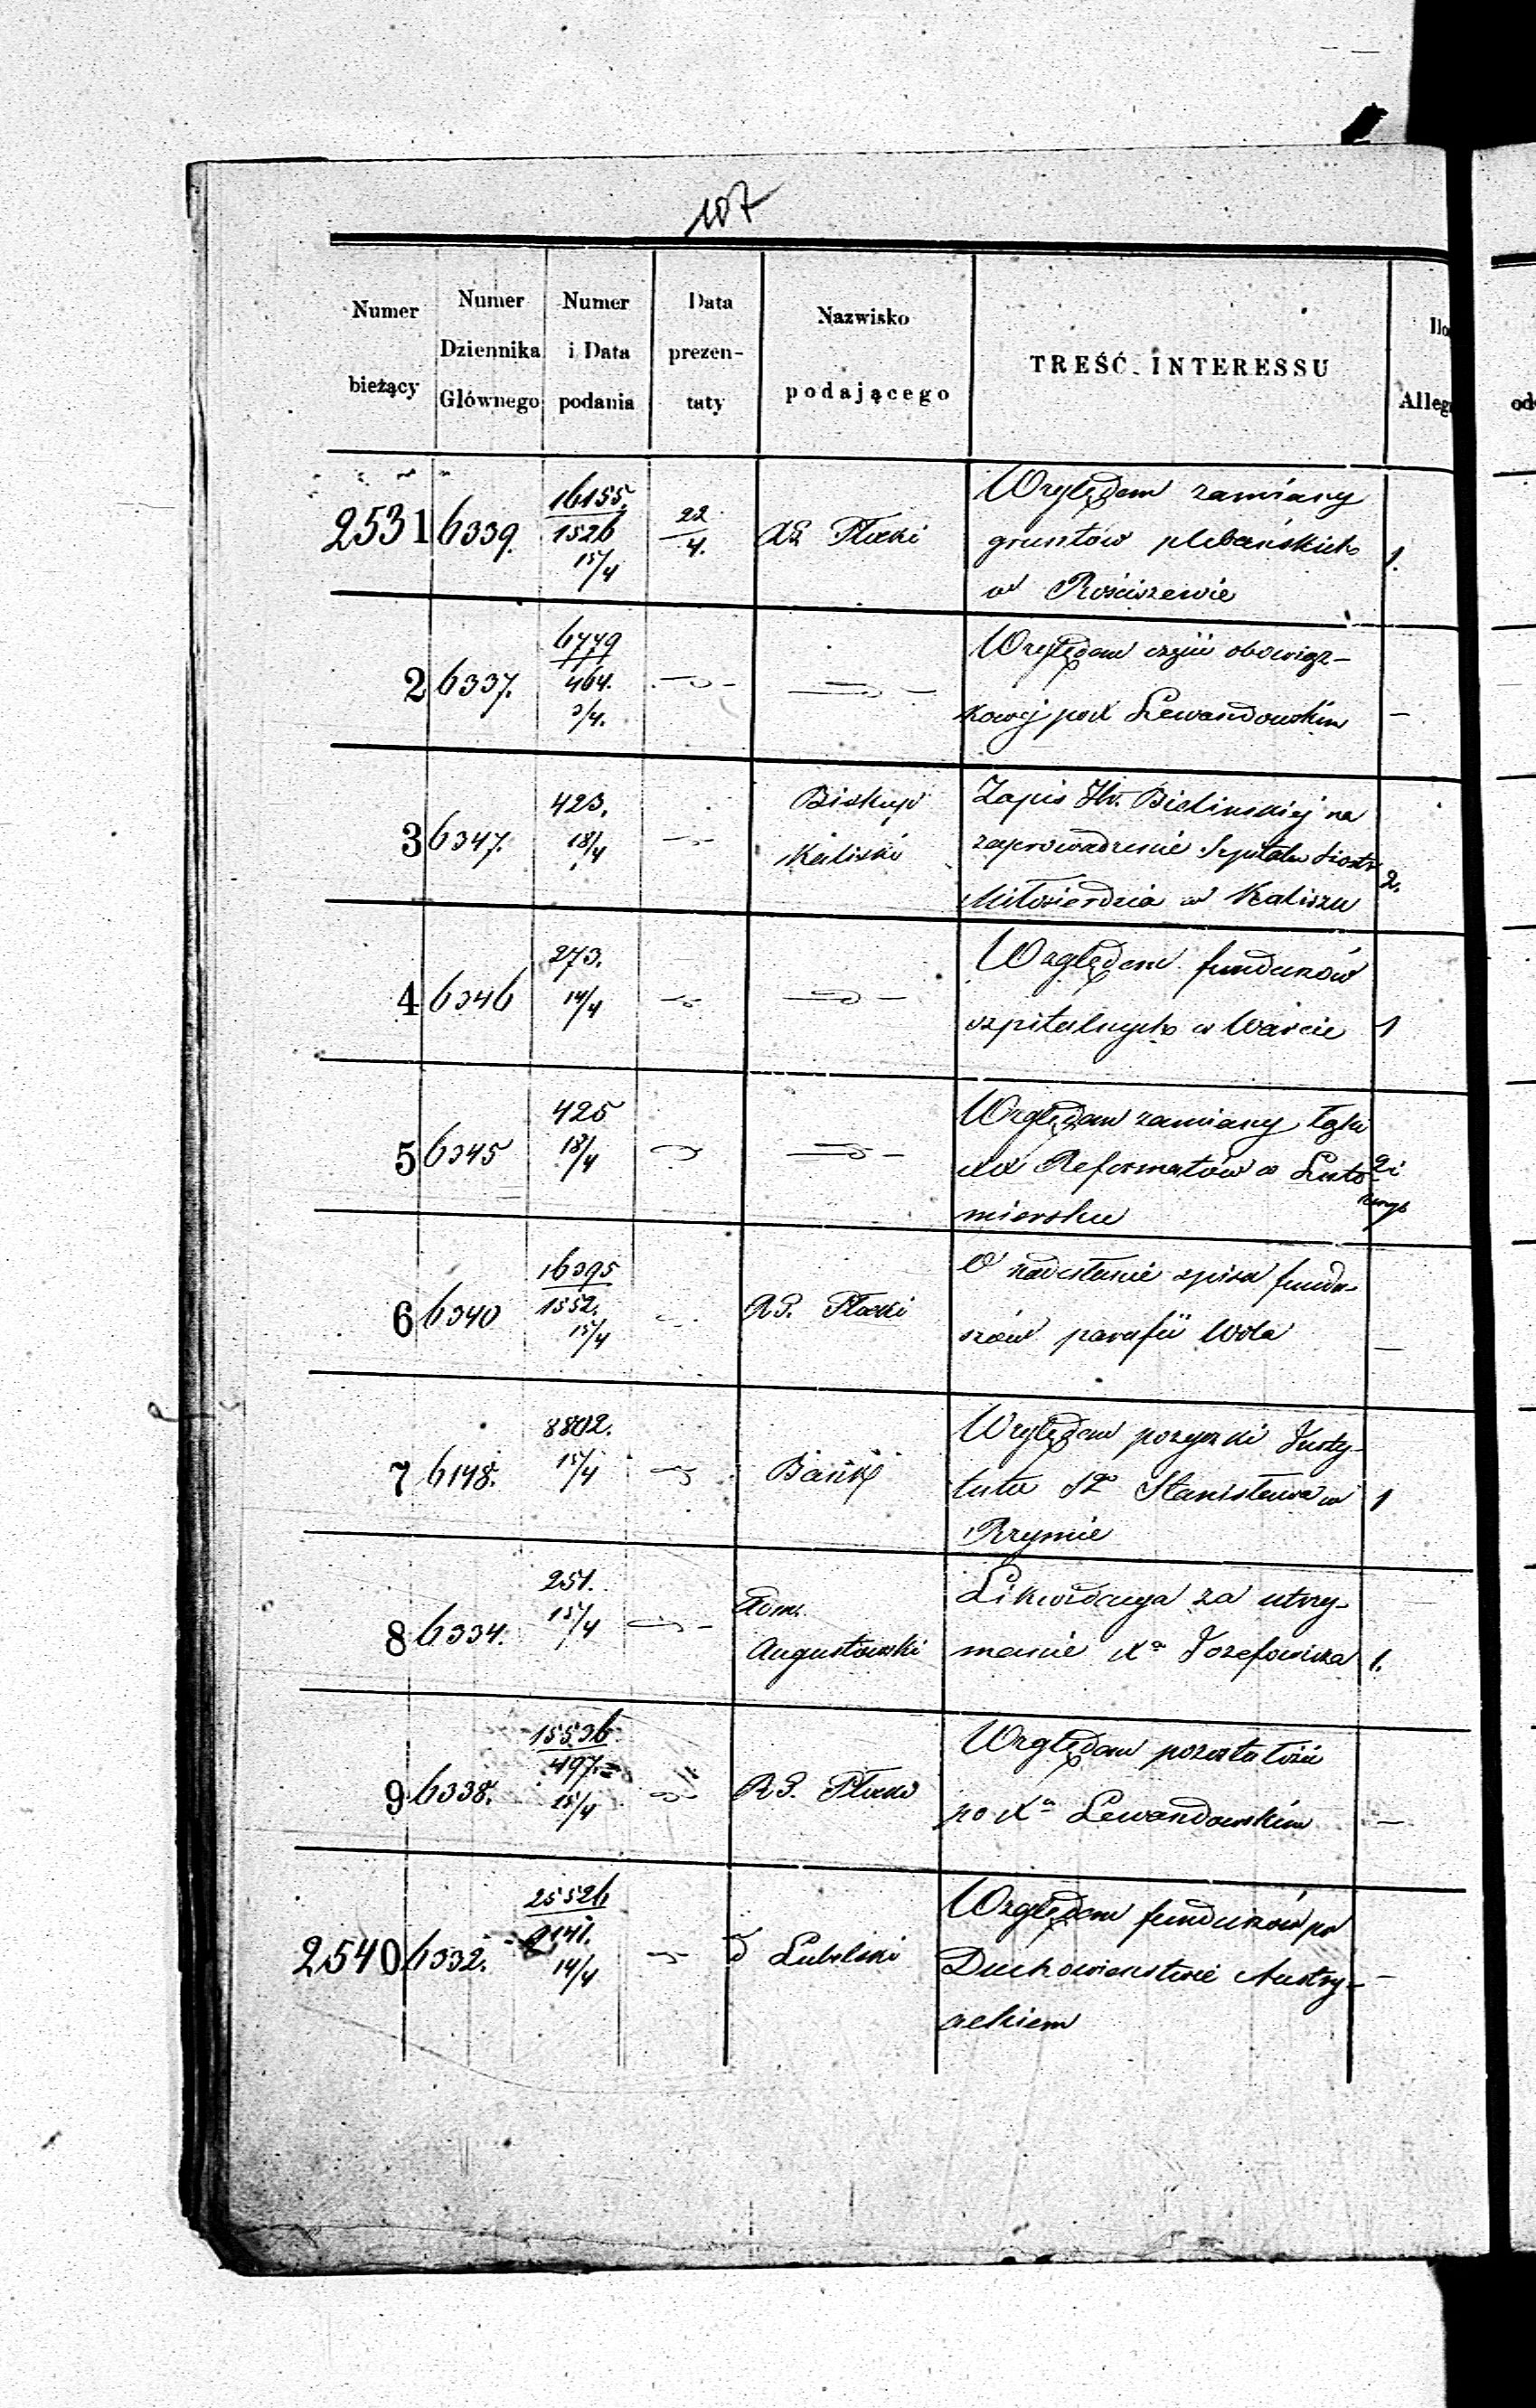 107
Numer bieżący
Numer Dziennika Głównego
Numer i Data podania
Data prezen- taty
Nazwisko podającego
TREŚĆ INTERESSU
2531 6339. 16155. 1526 15/4 22/4. Płocki 1.
Względem zamiany
gruntów plebańskich
w Rościszewie
2 6337. 6779 464. 3/4. —
Względem części obowiąz-
kowej po X Lewandowskim
3 6347. 423. 18/4 Biskup Kaliski 2.
Zapis Hr. Bielinskiej na
zaprowadzenie Szpitalu Siostr
Miłosierdzia w Kaliszu
4 6346 273. 14/4 1
Względem funduszów
szpitalnych w Warcie
5 6345 425 18/4 2 i
Względem zamiany łąki
XX Reformatów w Luto
miersku
6 6340 16395 1552. 15/4 R.G. Płocki —
O nadesłanie spisu fundu-
szów parafii Wola
7 6148. 8802. 15/4 Bank 1
Względem pożyczki Insty-
tutu Sgo Stanisława w
Rzymie
8 6334. 251. 15/4 Adm. Augustowski 1.
Likwidacya za utrzy-
manie Xa Jozefowicza
9 6338. 15536. 497. 15/4 R.G. Płocki —
Względem pozostałości
po Xu Lewandowskim
2540 6332. 25526 9141. 14/4 Lubelski —
Względem funduszów po
Duchowienstwie Austry-
ackiem